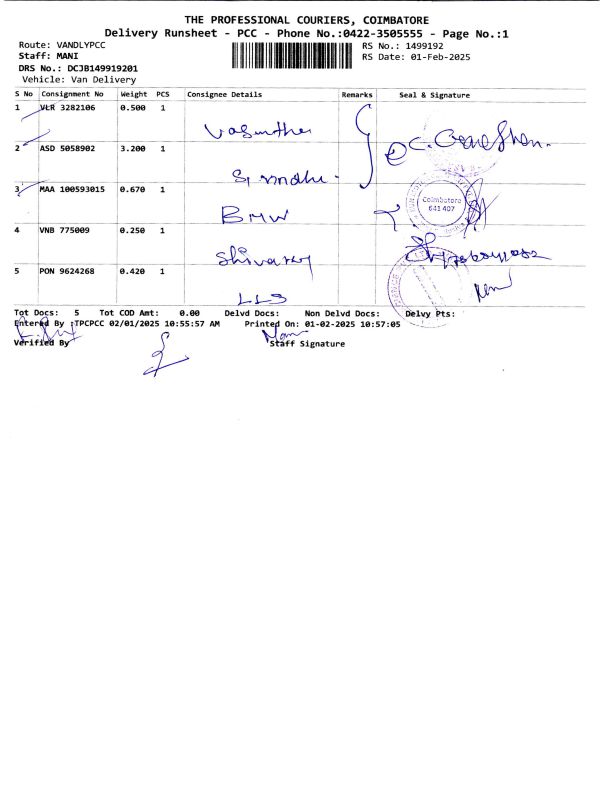 THE PROFESSIONAL COURIERS, COIMBATORE
Delivery Runsheet - PCC - Phone No.:0422-3505555 - Page No.:1
Route: VANDLYPCC
RS No.: 1499192
Staff: MANI
RS Date: 01-Feb-2025
DRS No.: DCJB149919201
Vehicle: Van Delivery
S No Consignment No Weight PCS Consignee Details Remarks Seal & Signature
1 VLR 3282106 0.500 1
2 ASD 5058902 3.200 1
3 MAA 100593015 0.670 1 BMW
Coimbatore
641 407
4 VNB 775009 0.250 1
5 PON 9624268 0.420 1
Tot Docs: 5 Tot COD Amt: 0.00 Delvd Docs: Non Delvd Docs: Delvy Pts:
Entered By :TPCPCC 02/01/2025 10:55:57 AM Printed On: 01-02-2025 10:57:05
Verified By Staff Signature